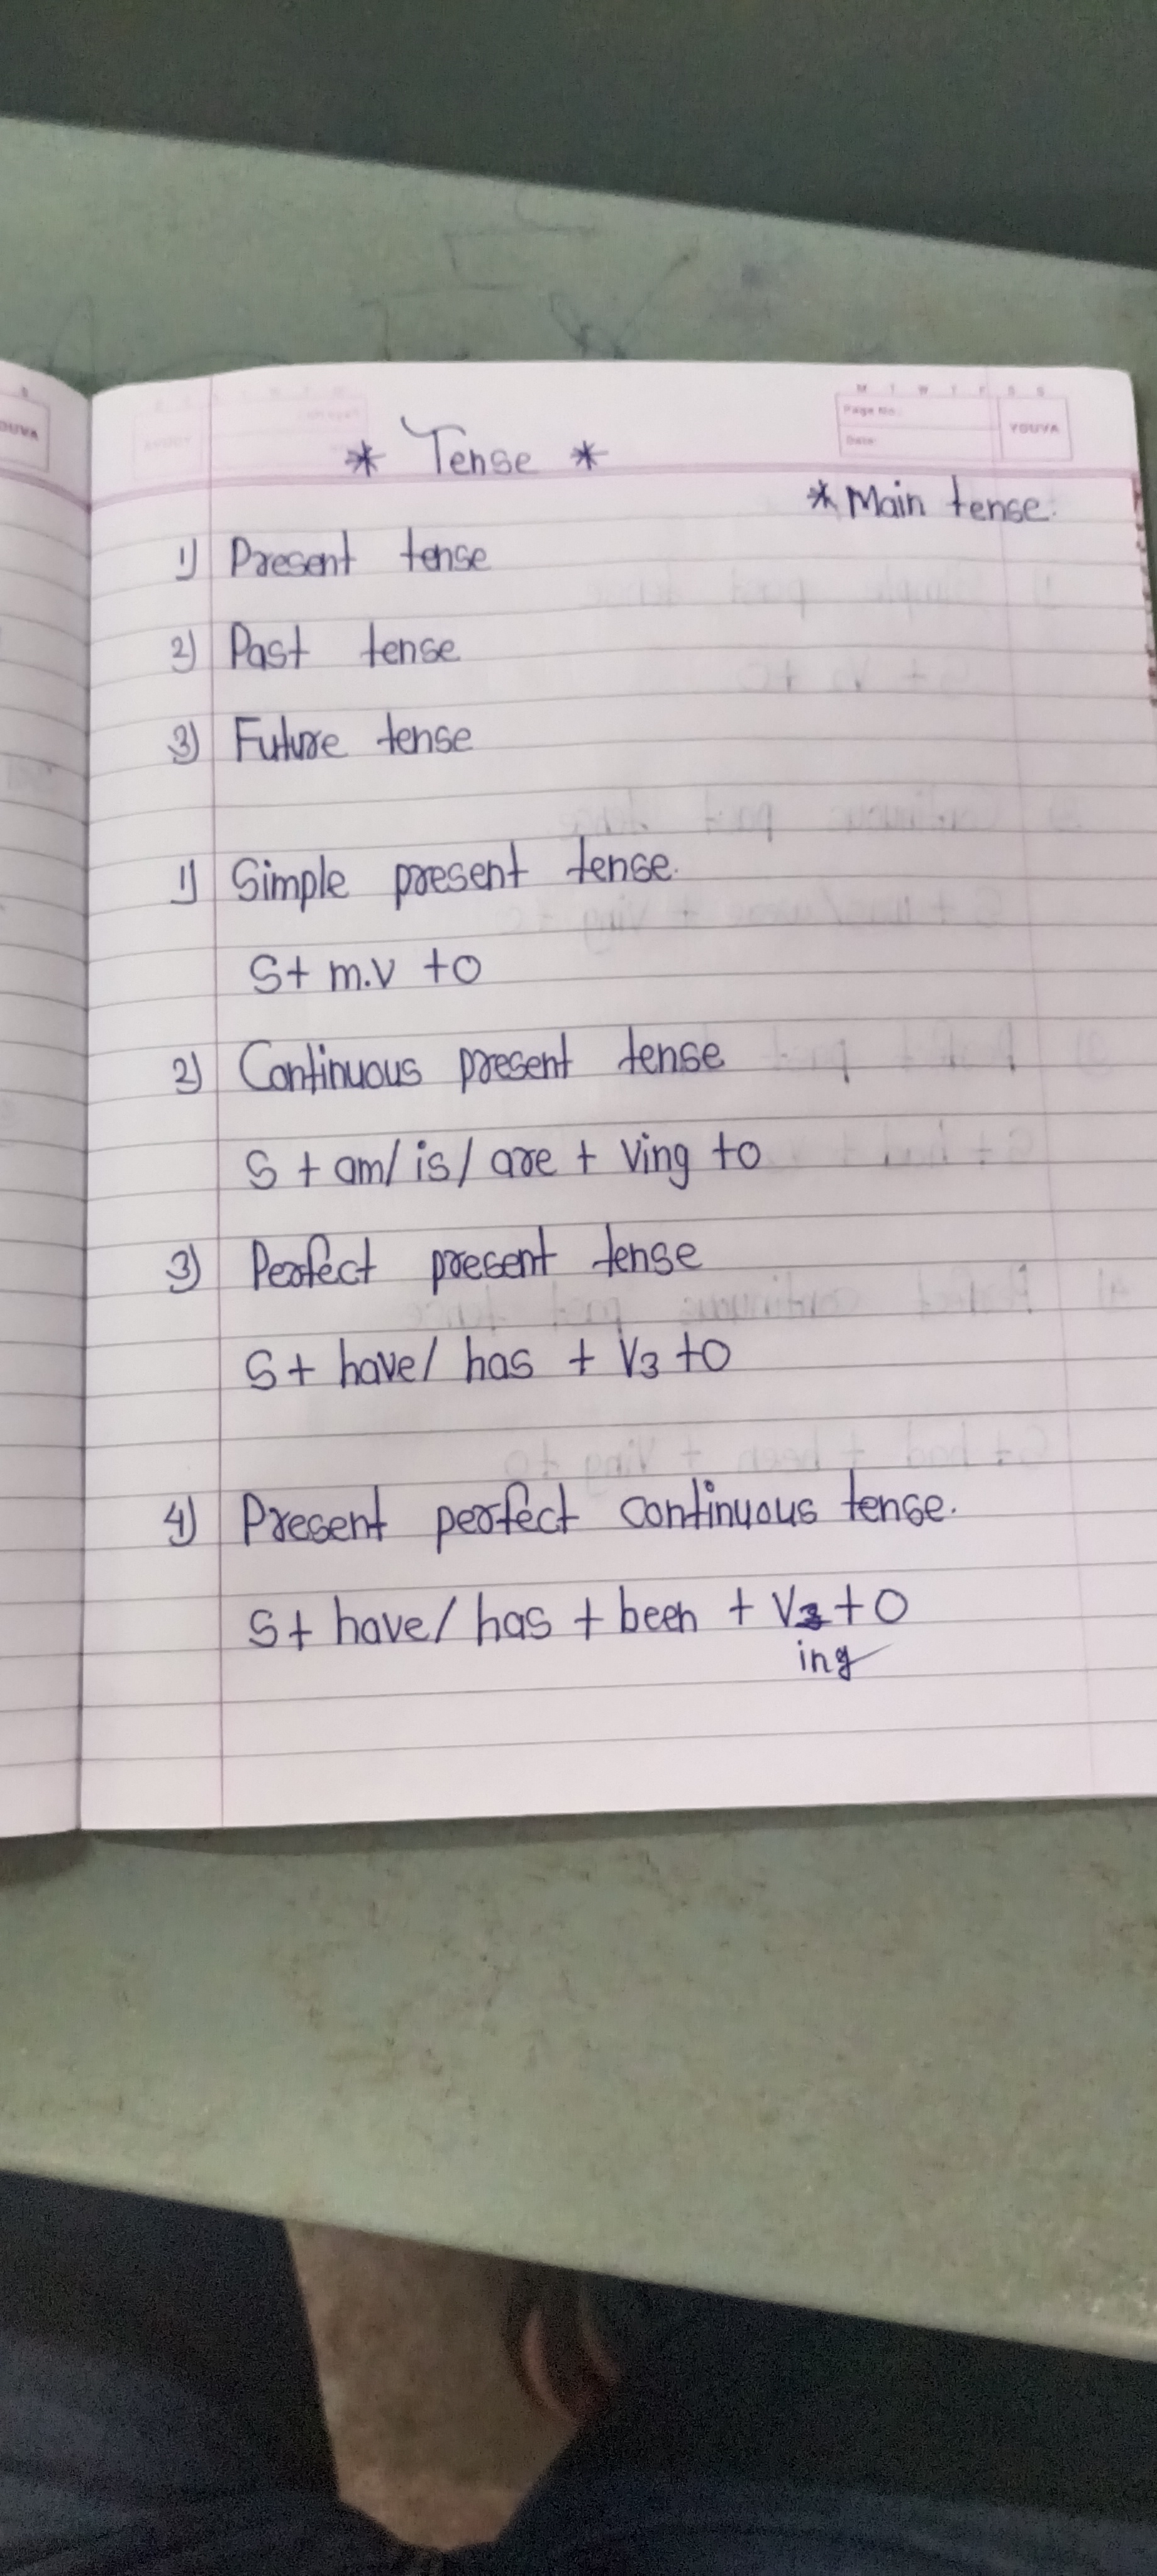 M T W T F S S
Page No.:
Date:
YOUVA
* Tense *
* Main tense.
1) Present tense
2) Past tense
3) Future tense
1) Simple present tense.
S + m.v + O
2) Continuous present tense
S + am/ is/ are + Ving + O
3) Perfect present tense
S + have/ has + V3 + O
4) Present perfect continuous tense.
S + have/ has + been + V + O
ing